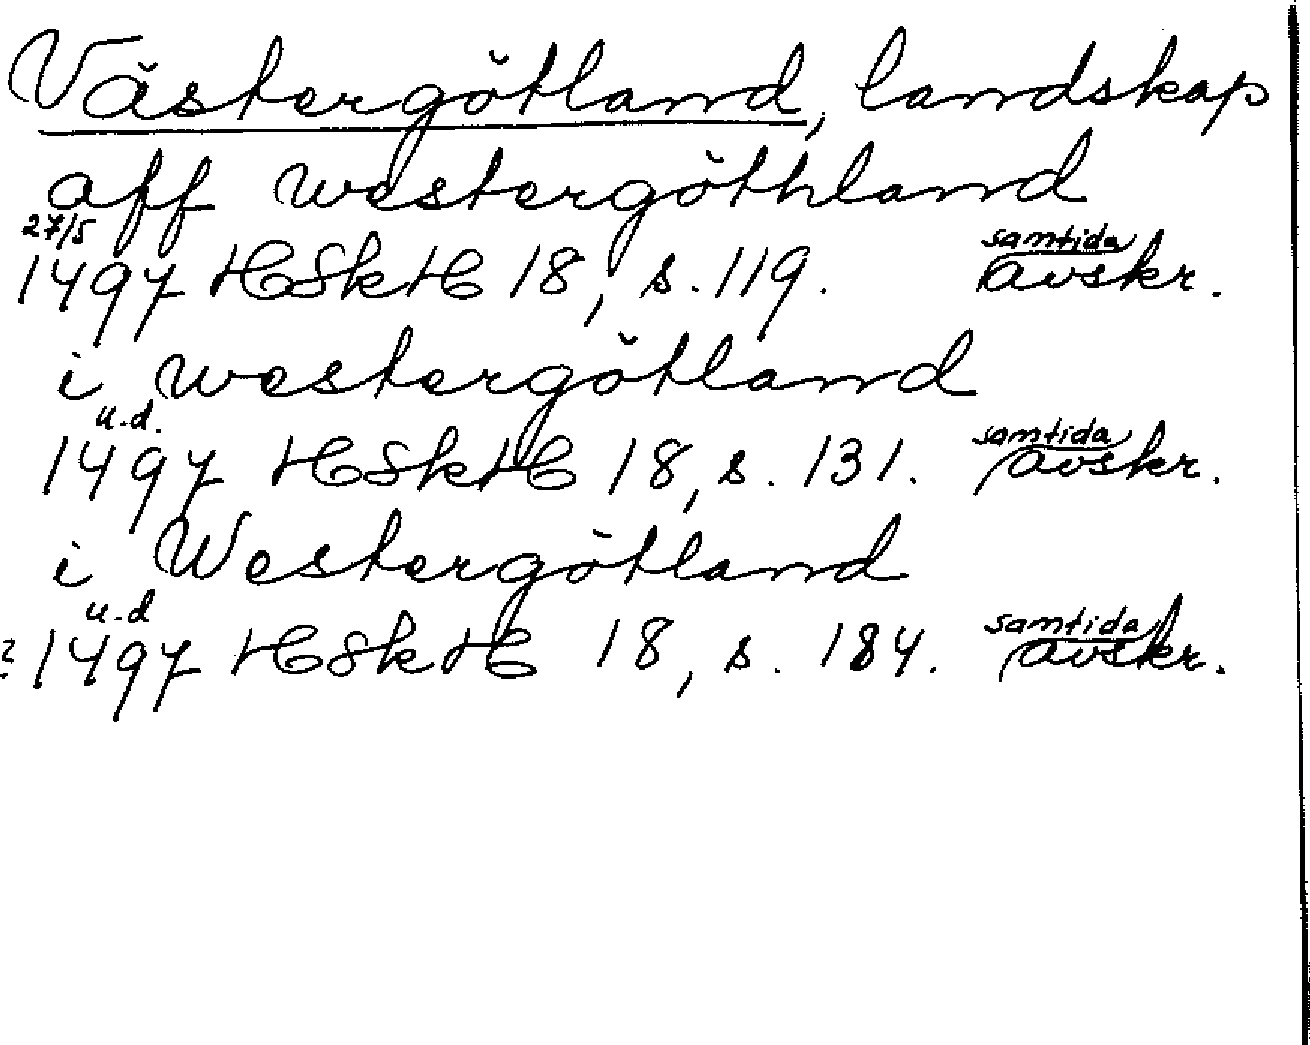 Västergötland, landskap
aff westergöthland
27/5
samtida
1497 HSkH 18, s. 119. avskr.
i westergötland
u.d.
samtida
1497 HSkH 18, s. 131. avskr.
i Westergötland
u.d
samtida
1497 HSkH 18, s. 184. avskr.